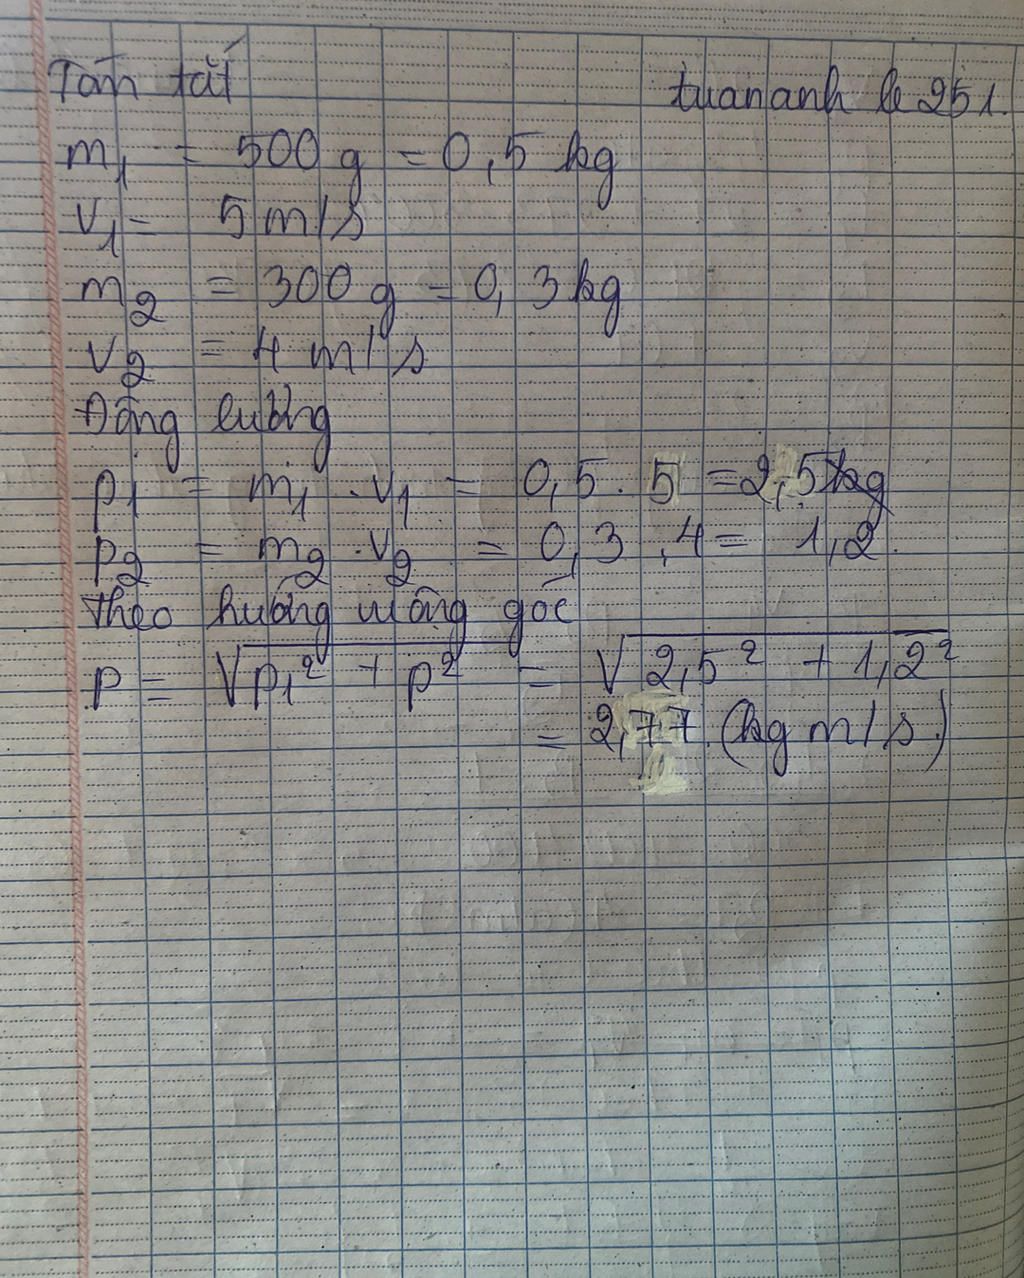 Tóm tắt
tuananh le 251.
m₁ = 500 g = 0,5 kg
v₁ = 5 m/s
m₂ = 300 g = 0,3 kg
v₂ = 4 m/s
Động lượng
p₁ = m₁ . v₁ = 0,5 . 5 = 2,5
p₂ = m₂ . v₂ = 0,3 . 4 = 1,2.
theo hướng vuông góc
p = √p₁² + p² = √2,5² + 1,2²
= 2,77. (kg m/s.)